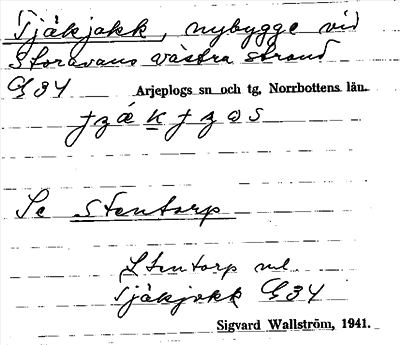 Tjäkjokk, nybygge vid
Storavans västra strand
G 34 Arjeplogs sn och tg, Norrbottens län.
Se Stentorp
Stentorp ml
Tjäkjokk G 34
Sigvard Wallström, 1941.